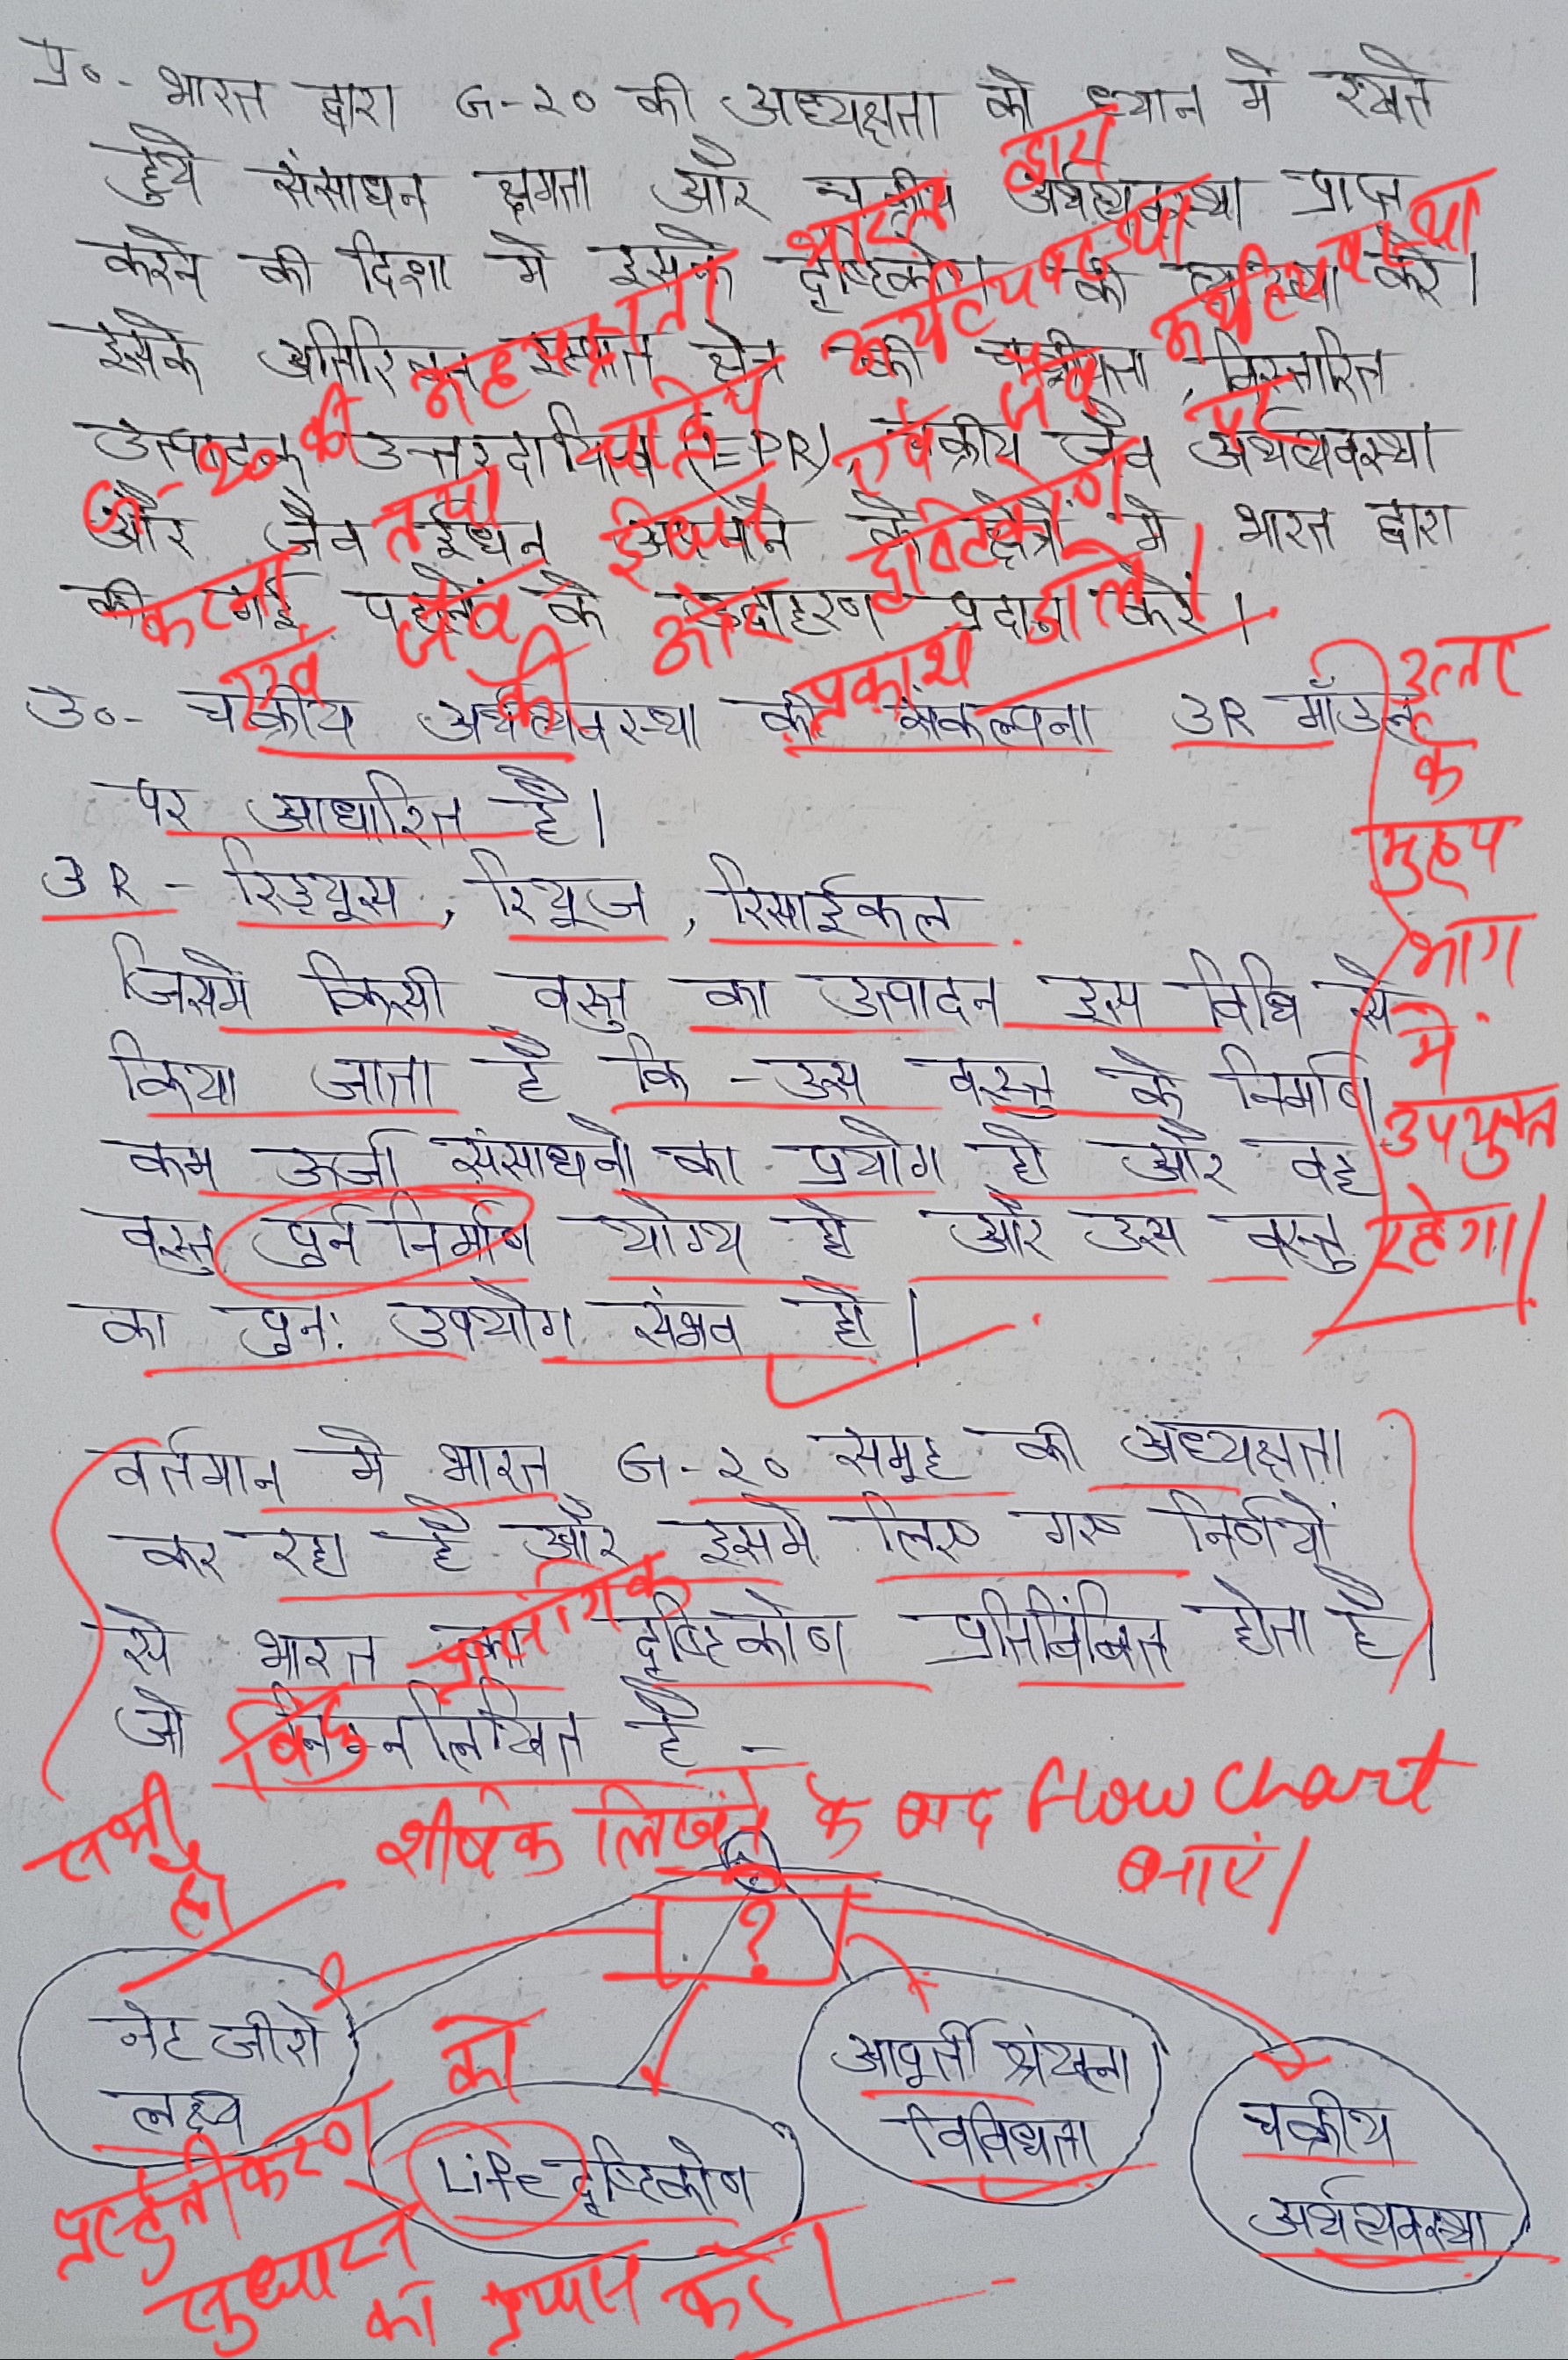 प्र०- भारत द्वारा G-20 की अध्यक्षता को ध्यान में रखते
हुये संसाधन क्षमता और चक्रीय अर्थव्यवस्था प्राप्त
करने की दिशा में इसके दृष्टिकोण की व्याख्या करें।
इसके अतिरिक्त इस्पात क्षेत्र की चक्रीयता, विस्तारित
उत्पादक उत्तरदायित्व (EPR), चक्रीय जैव अर्थव्यवस्था
और जैव ईंधन अपनाने के क्षेत्रों में भारत द्वारा
की गई पहलों के उदाहरण प्रदान करें।
G-20 की अध्यक्षता भारत द्वारा
करना तथा चक्रीय अर्थव्यवस्था
एवं जैव इंधन एवं जैव अर्थव्यवस्था
की और दृष्टिकोण पर
प्रकाश डालें।
उ०- चक्रीय अर्थव्यवस्था की संकल्पना 3R मॉडल
पर आधारित है।
3R - रिड्यूस, रियूज, रिसाईकल
जिसमे किसी वस्तु का उत्पादन इस विधि से
किया जाता है कि - उस वस्तु के निर्माण
कम ऊर्जा संसाधनो का प्रयोग हो और वह
वस्तु पुर्न निर्माण योग्य हो और उस वस्तु
का पुनः उपयोग संभव हो।
उत्तर
के
मुख्य
भाग
में
उपयुक्त
रहेगा।
वर्तमान मे भारत G-20 समूह की अध्यक्षता
कर रहा है और इसमे लिए गए निर्णयों
से भारत का दृष्टिकोण प्रतिबिंबित होता है।
जो निम्नलिखित है -
प्रासंगिक
बिंदु
नहीं
है।
शीर्षक लिखने के बाद Flow chart
बनाएं।
?
नेट जीरो
लक्ष्य
Life दृष्टिकोण
आपूर्ती श्रंखला
विविधता
चक्रीय
अर्थव्यवस्था
प्रस्तुतीकरण को
सुधारने
का प्रयास करें।